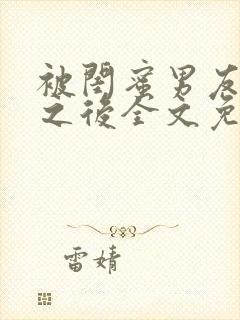 被閨蜜男友
之後全文免
雷婧